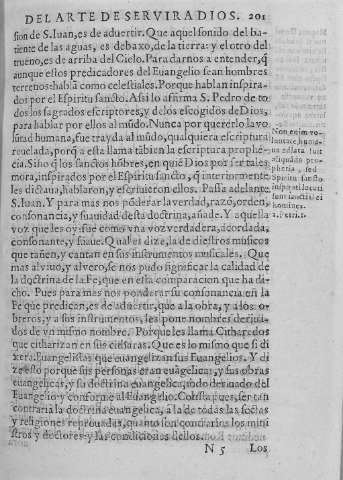 DEL ARTE DE SERVIR A DIOS. 201
sion de S. Iuan, es de aduertir. Que aquel sonido del ba-
tiente de las aguas, es debaxo, de la tierra: y el otro del
trueno, es de arriba del Cielo. Para darnos a entender, q̃
aunque estos predicadores del Euangelio sean hombres
terrenos: hablã como celestiales. Porque hablan inspira-
dos por el Espiritu sancto. Asi lo afirma S. Pedro de to-
dos los sagrados escriptores, y de los escogidos de Dios,
para hablar por ellos al mũdo. Nunca por quererlo la vo
lũtad humana, fue trayda al mũdo, qualquiera escriptura
reuelada, porq̃ a esta llama tãbien la escriptura prophe-
cia. Sino q̃ los sanctos hõbres, en quiẽ Dios por ser tales
mora, inspirados por el Espiritu sancto, q̃ interiormente
les dictaua, hablaron, y escriuieron ellos. Passa adelante
S. Iuan. Y para mas nos põderar la verdad, razõ, orden,
consonancia, y suauidad desta doctrina, añade. Y aquella
voz que les oy: fue como vna voz verdadera, acordada,
consonante, y suaue. Qual es dize, la de diestros musicos
que tañen, y cantan en sus instrumentos musicales. Que
mas al viuo, y al vero, se nos pudo significar la calidad de
la doctrina de la Fe, que en esta comparacion que ha di-
cho. Pues para mas nos ponderar su consonancia en la
Fe que predican, es de aduertir, que a la obra, y a los o-
breros, y a sus instrumentos, les pone nombres deriua-
dos de vn mismo nombre. Porque les llama Citharedos
que citharizan en sus citharas. Que es lo mismo que si di
xera. Euangelistas que euangelizan sus Euangelios. Y di
ze esto porque sus personas eran euãgelicas, y sus obras
euangelicas, y su doctrina euangelica, todo deriuado del
Euangelio y conforme al Euangelio. Consta pues, ser tan
contraria la doctrina euangelica, a la de todas las sectas
y religiones reprouadas, quanto son contrarios los mini
stros y doctores y las condiciones dellos.
Non enim vo-
luntate huma-
na allata fuit
aliquãdo pro-
phetia, sed
Spiritu sancto
inspirati locuti
sunt sancti dei
homines.
2. Petri. 1.
N 5 Los